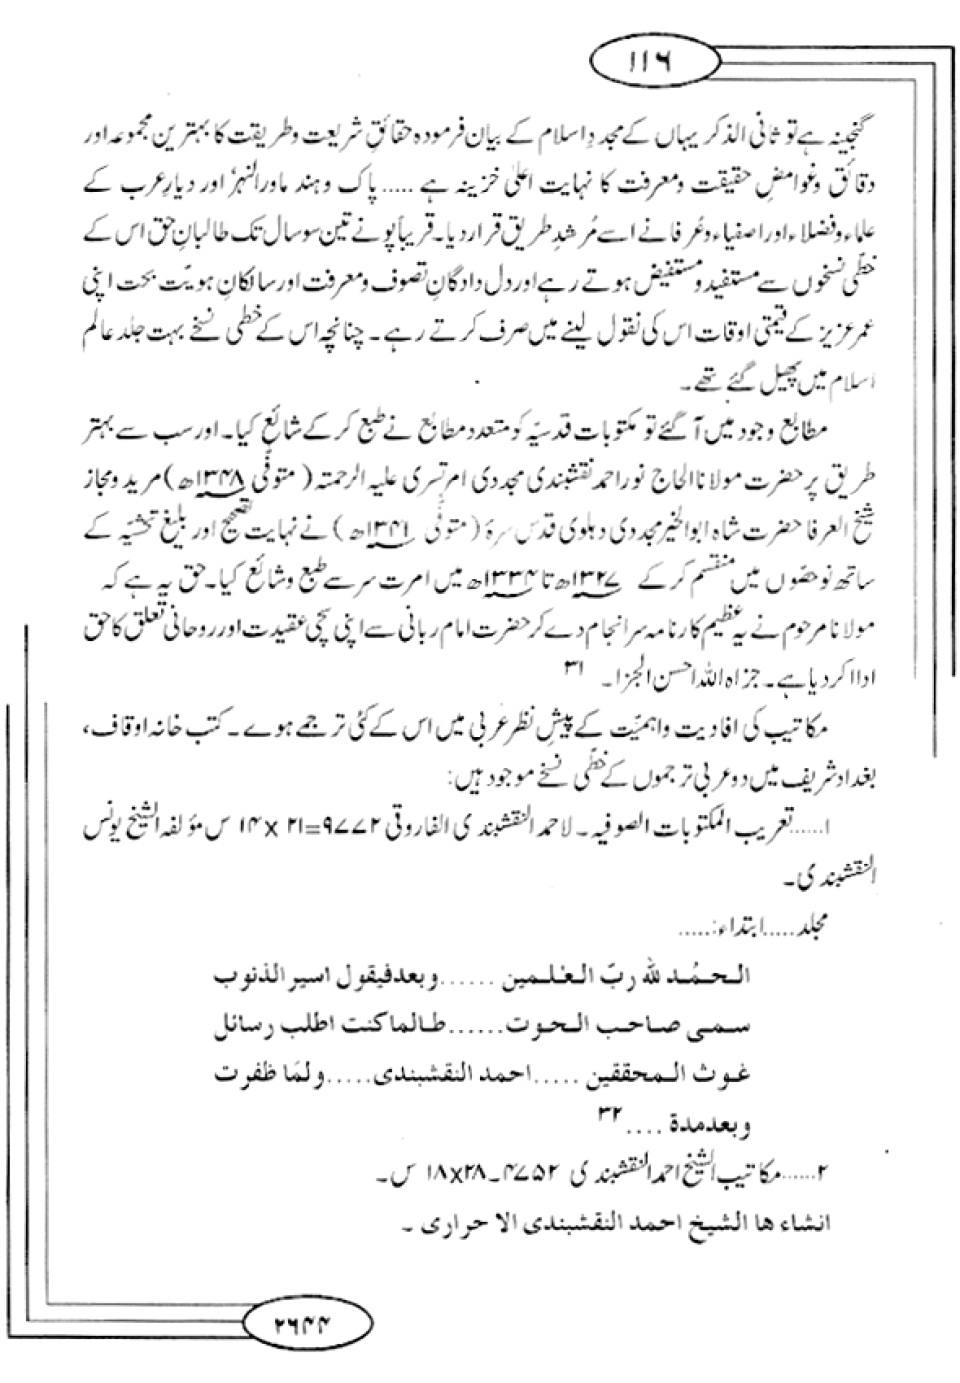 ۱۱۶
گنجینہ ہے تو ثانی الذکر یہاں کے مجددِ اسلام کے بیان فرمودہ حقائقِ شریعت و طریقت کا بہترین مجموعہ اور
دقائق وغوامضِ حقیقت ومعرفت کا نہایت اعلیٰ خزینہ ہے ..... پاک و ہند ماورالنہر اور دیارِ عرب کے
علماء و فضلاء اور اصفیاء و عُرفا نے اسے مُرشدِ طریق قرار دیا۔ قریباً پونے تین سو سال تک طالبانِ حق اس کے
خطّی نسخوں سے مستفید و مستفیض ہوتے رہے اور دل دادگانِ تصوف و معرفت اور سالکانِ ہویّت بحت اپنی
عمر عزیز کے قیمتی اوقات اس کی نقول لینے میں صرف کرتے رہے۔ چنانچہ اس کے خطی نسخے بہت جلد عالم
اسلام میں پھیل گئے تھے۔
مطابع وجود میں آ گئے تو مکتوبات قدسیّہ کو متعدد مطابع نے طبع کر کے شائع کیا۔ اور سب سے بہتر
طریق پر حضرت مولانا الحاج نور احمد نقشبندی مجددی امرتسری علیہ الرحمتہ (متوفّی ۱۳۴۸ھ) مرید و مجاز
شیخ العرفا حضرت شاہ ابوالخیر مجددی دہلوی قدس سرہٗ (متوفّی ۱۳۴۱ھ) نے نہایت تصحیح اور بلیغ تحشیّہ کے
ساتھ نو حصّوں میں منقسم کر کے ۱۳۲۷ھ تا ۱۳۳۴ھ میں امرت سر سے طبع و شائع کیا۔ حق یہ ہے کہ
مولانا مرحوم نے یہ عظیم کارنامہ سرانجام دے کر حضرت امام ربانی سے اپنی سچی عقیدت اور روحانی تعلق کا حق
ادا کر دیا ہے۔ جزاہ اللہ احسن الجزا۔ ۳۱
مکاتیب کی افادیت و اہمیّت کے پیشِ نظر عربی میں اس کے کئی ترجمے ہوے۔ کتب خانہ اوقاف،
بغداد شریف میں دو عربی ترجموں کے خطّی نسخے موجود ہیں:
۱......تعریب المکتوبات الصوفیہ۔ لاحمد النقشبندی الفاروقی ۹۷۷۲=۲۱ x ۱۴ س مؤلفہ الشیخ یونس
النقشبندی۔
مجلد.....ابتداء:.....
الحمُد للہ ربّ العٰلمین ......وبعد فیقول اسیر الذنوب
سمی صاحب الحوت......طالما کنت اطلب رسائل
غوث المحققین .....احمد النقشبندی.....ولمّا ظفرت
وبعد مدة .... ۳۲
۲......مکاتیب الشیخ احمد النقشبندی ۴۷۵۲۔۲۸x۱۸ س۔
انشاء ھا الشیخ احمد النقشبندی الاحراری ۔
۲۶۴۴